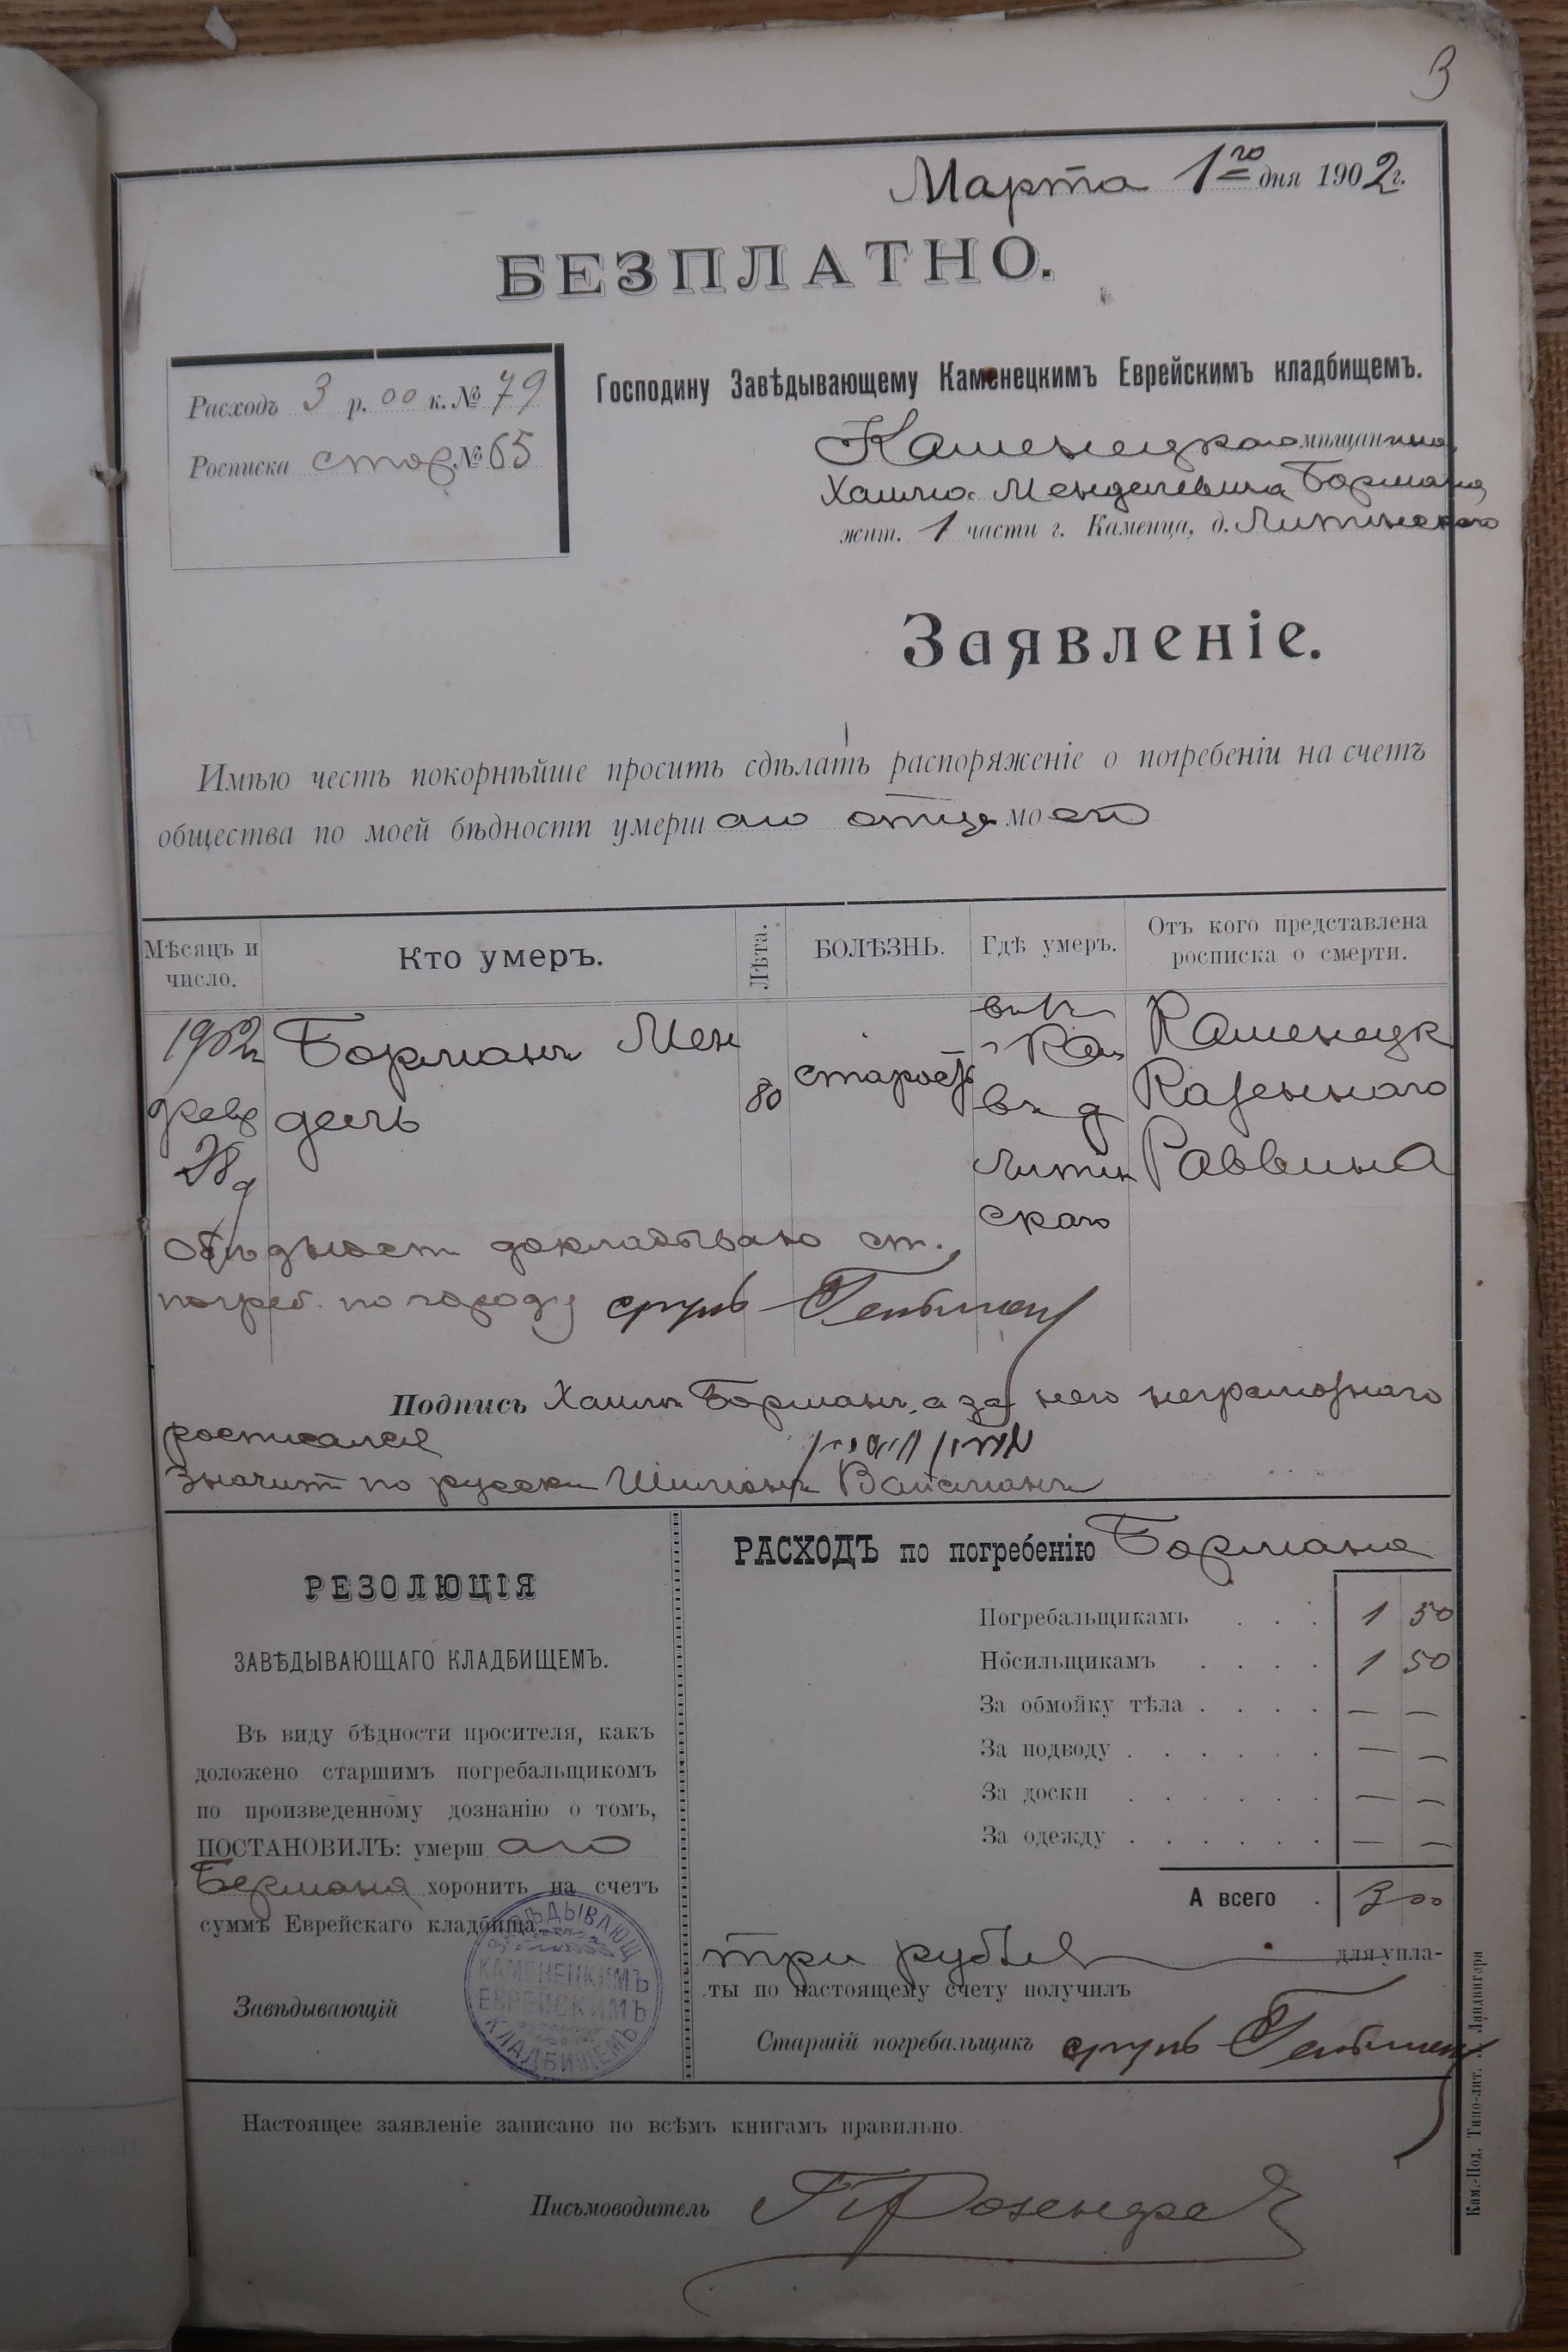 3
Марта 1го дня 1902 г.
БЕЗПЛАТНО.
Расходъ 3 р. 00 к. № 79
Росписка стор № 65
Господину Завѣдывающему Каменецкимъ Еврейскимъ кладбищемъ.
Каменецкаго мѣщанина
Хаима Менделевича Бормана,
жит. 1 части г. Каменца, д. Литинскаго
Заявленіе.
Имѣю честь покорнѣйше просить сдѣлать распоряженіе о погребеніи на счетъ
общества по моей бѣдности умершаго отца моего
Мѣсяцъ и число.
Кто умеръ.
Лѣта.
БОЛѢЗНЬ.
Гдѣ умеръ.
Отъ кого представлена росписка о смерти.
1902г
февр
28 д
Борманъ Мен
дель
80
старость
въ г
Кам
въ д
Литин
скаго
Каменецк
Казеннаго
Раввина
О бѣдност докладываю ст.
погреб. по городу
Подпись Хаимъ Борманъ, а за него неграмотнаго
росписался
Значит по русски Шимонъ Вайсманъ
РЕЗОЛЮЦІЯ
ЗАВѢДЫВАЮЩАГО КЛАДБИЩЕМЪ.
Въ виду бѣдности просителя, какъ
доложено старшимъ погребальщикомъ
по произведенному дознанію о томъ,
ПОСТАНОВИЛЪ: умершаго
Бормана хоронить на счетъ
суммъ Еврейскаго кладбища.
Завѣдывающій
ЗАВѢДЫВАЮЩ.
КАМЕНЕЦКИМЪ
ЕВРЕЙСКИМЪ
КЛАДБИЩЕМЪ
РАСХОДЪ по погребенію Бормана
Погребальщикамъ . . . 1 50
Носильщикамъ . . . . 1 50
За обмойку тѣла . . . . — —
За подводу . . . . . . — —
За доски . . . . . . — —
За одежду . . . . . . — —
А всего . 3 00
три рубля для упла-
ты по настоящему счету получилъ
Старшій погребальщикъ
Настоящее заявленіе записано по всѣмъ книгамъ правильно.
Письмоводитель
Кам.-Под. Типо-лит. Ландвигера